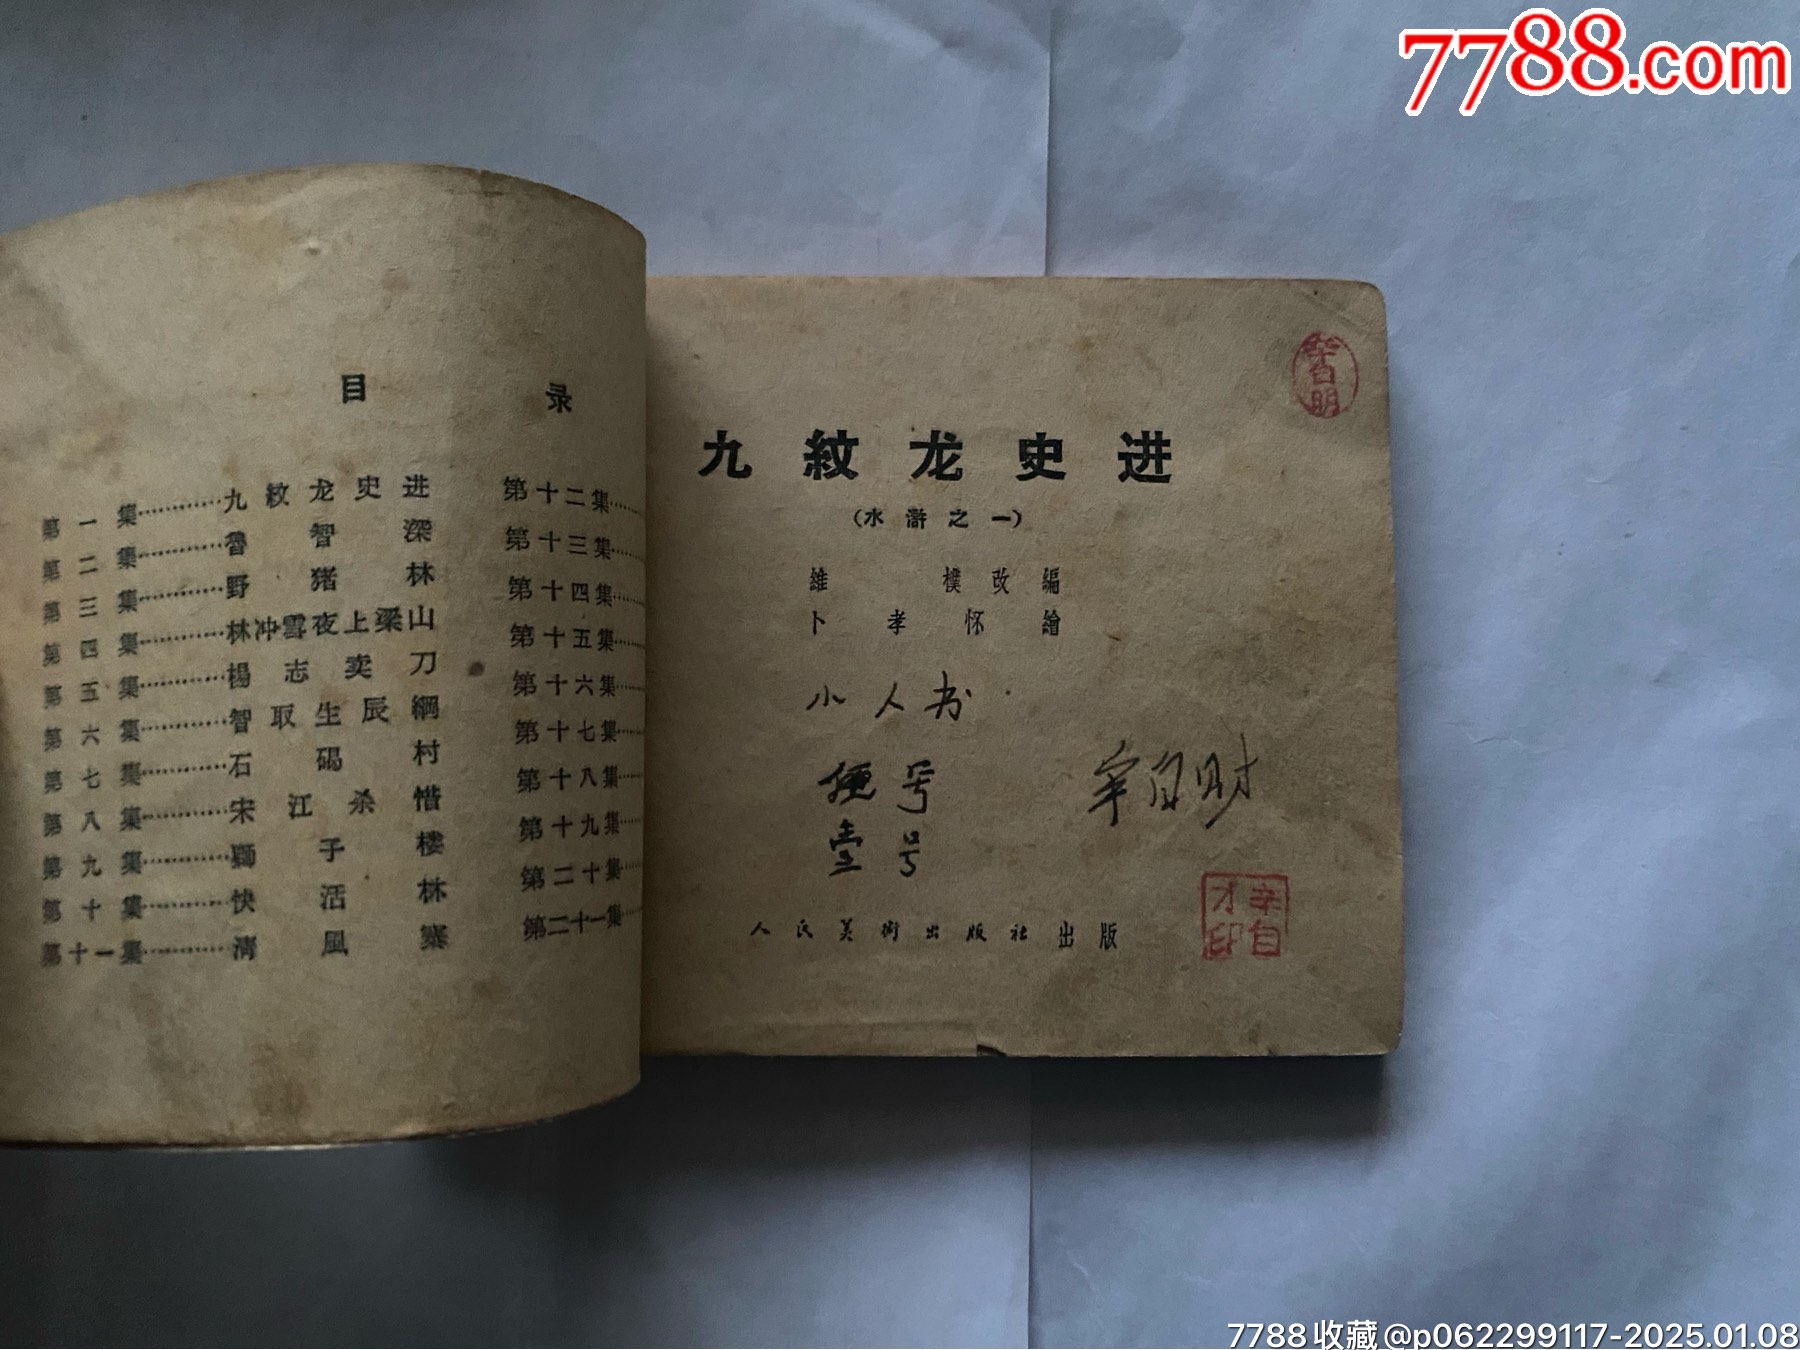 7788.com
目 录
第一集………九紋龙史进
第二集………魯智深
第三集………野猪林
第四集………林冲雪夜上梁山
第五集………楊志卖刀
第六集………智取生辰綱
第七集………石碣村
第八集………宋江杀惜
第九集………獅子楼
第十集………快活林
第十一集………清風寨
第十二集……
第十三集……
第十四集……
第十五集……
第十六集……
第十七集……
第十八集……
第十九集……
第二十集……
第二十一集……
九紋龙史进
(水滸之一)
維樸改編
卜孝怀繪
小人书
号
壹号
辛自财
人民美術出版社出版
辛自明
辛自才印
7788收藏@p062299117-2025.01.08